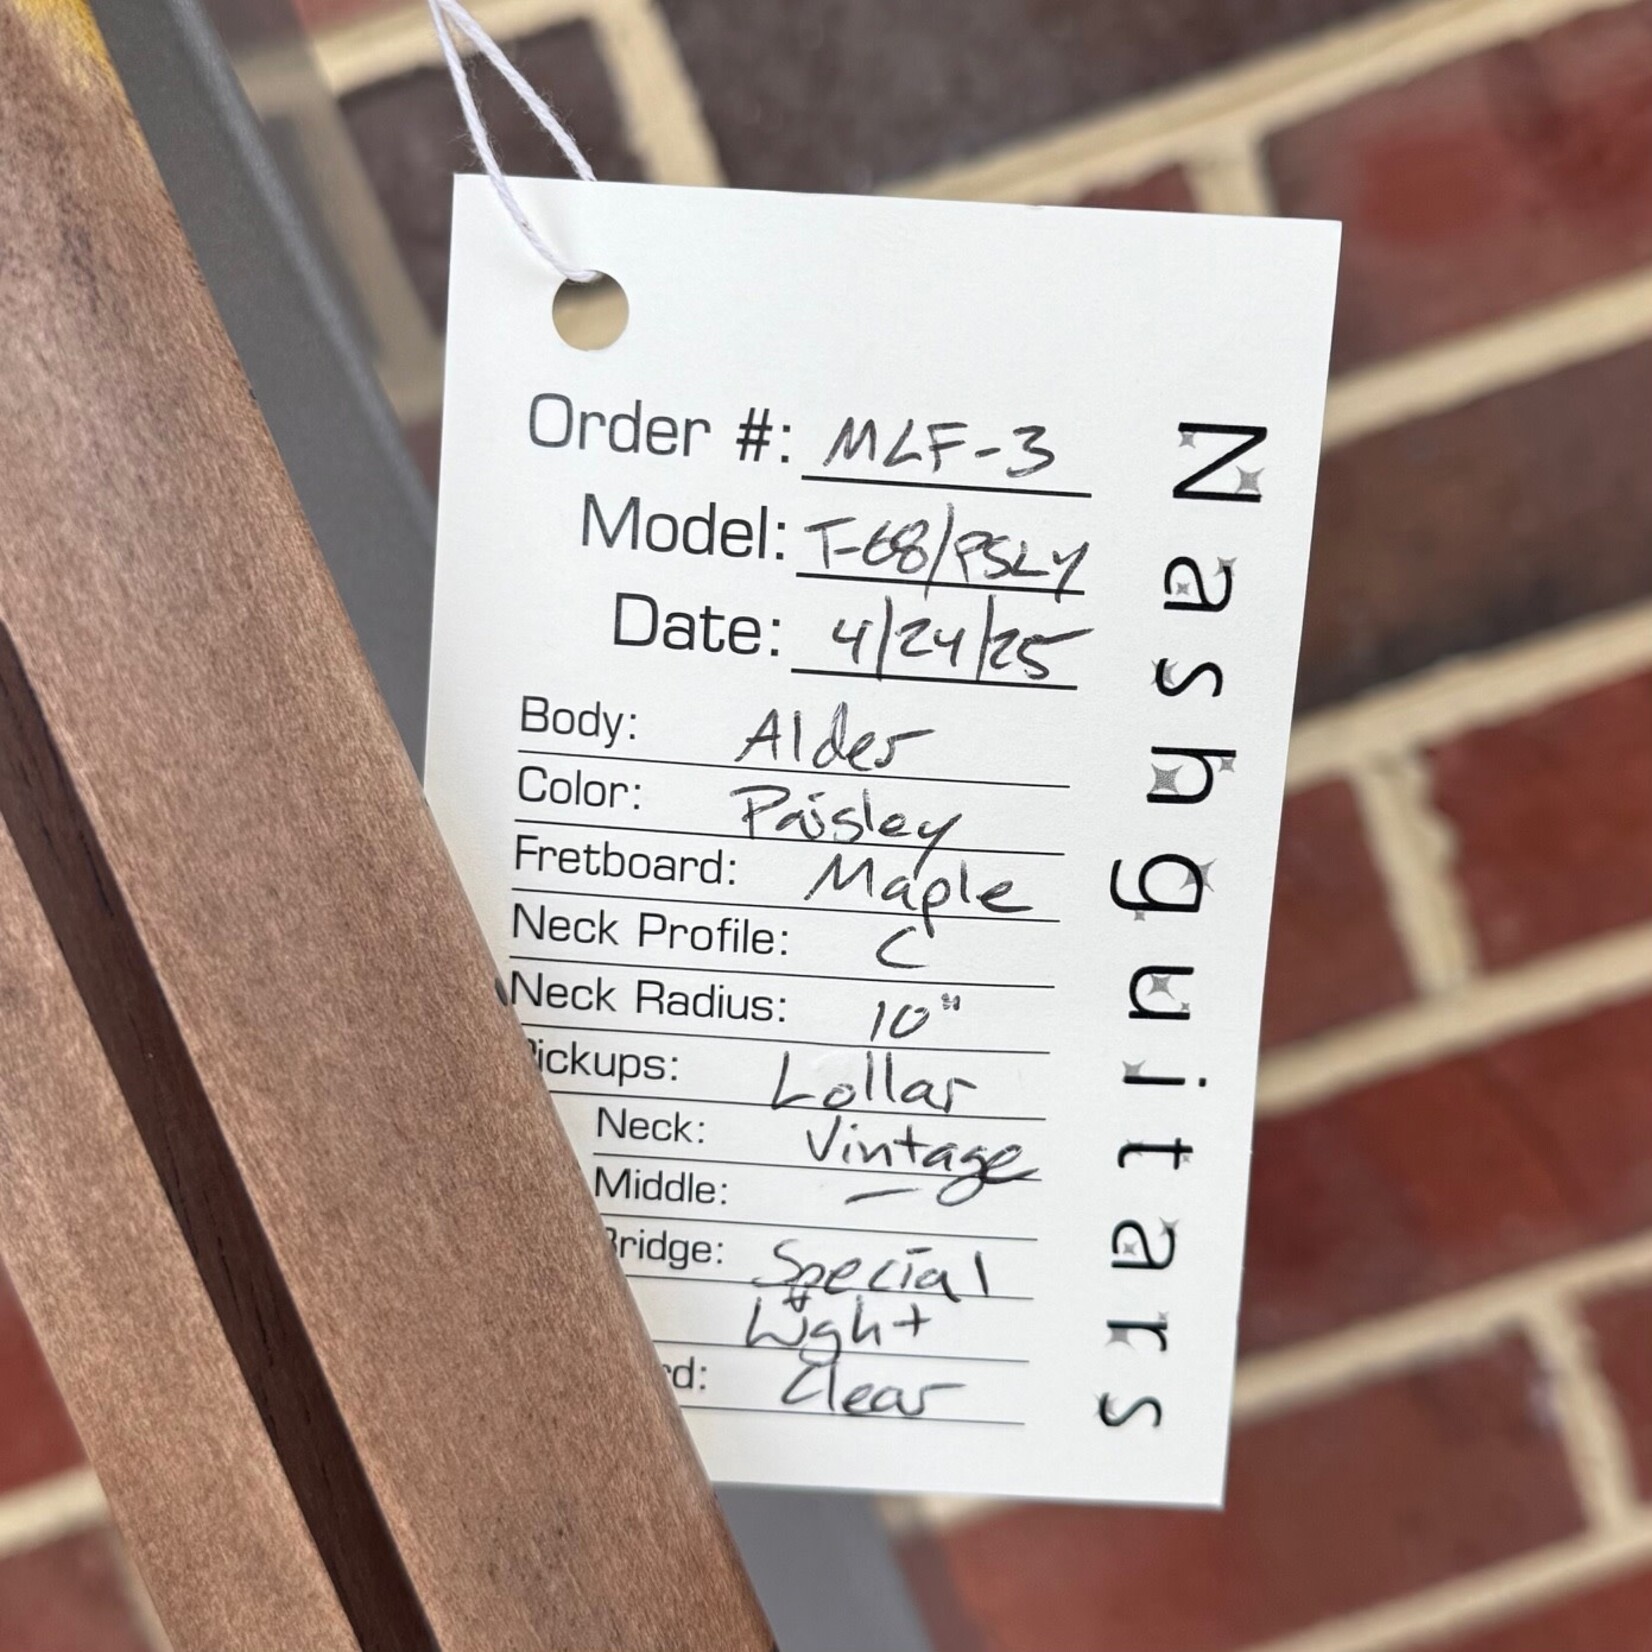 Order #: MLF-3
Model: T-68/PSLY
Date: 4/24/25
Body: Alder
Color: Paisley
Fretboard: Maple
Neck Profile: C
Neck Radius: 10"
Pickups: Lollar
Neck: Vintage
Middle: —
Bridge: Special
Clear
Nashguitars